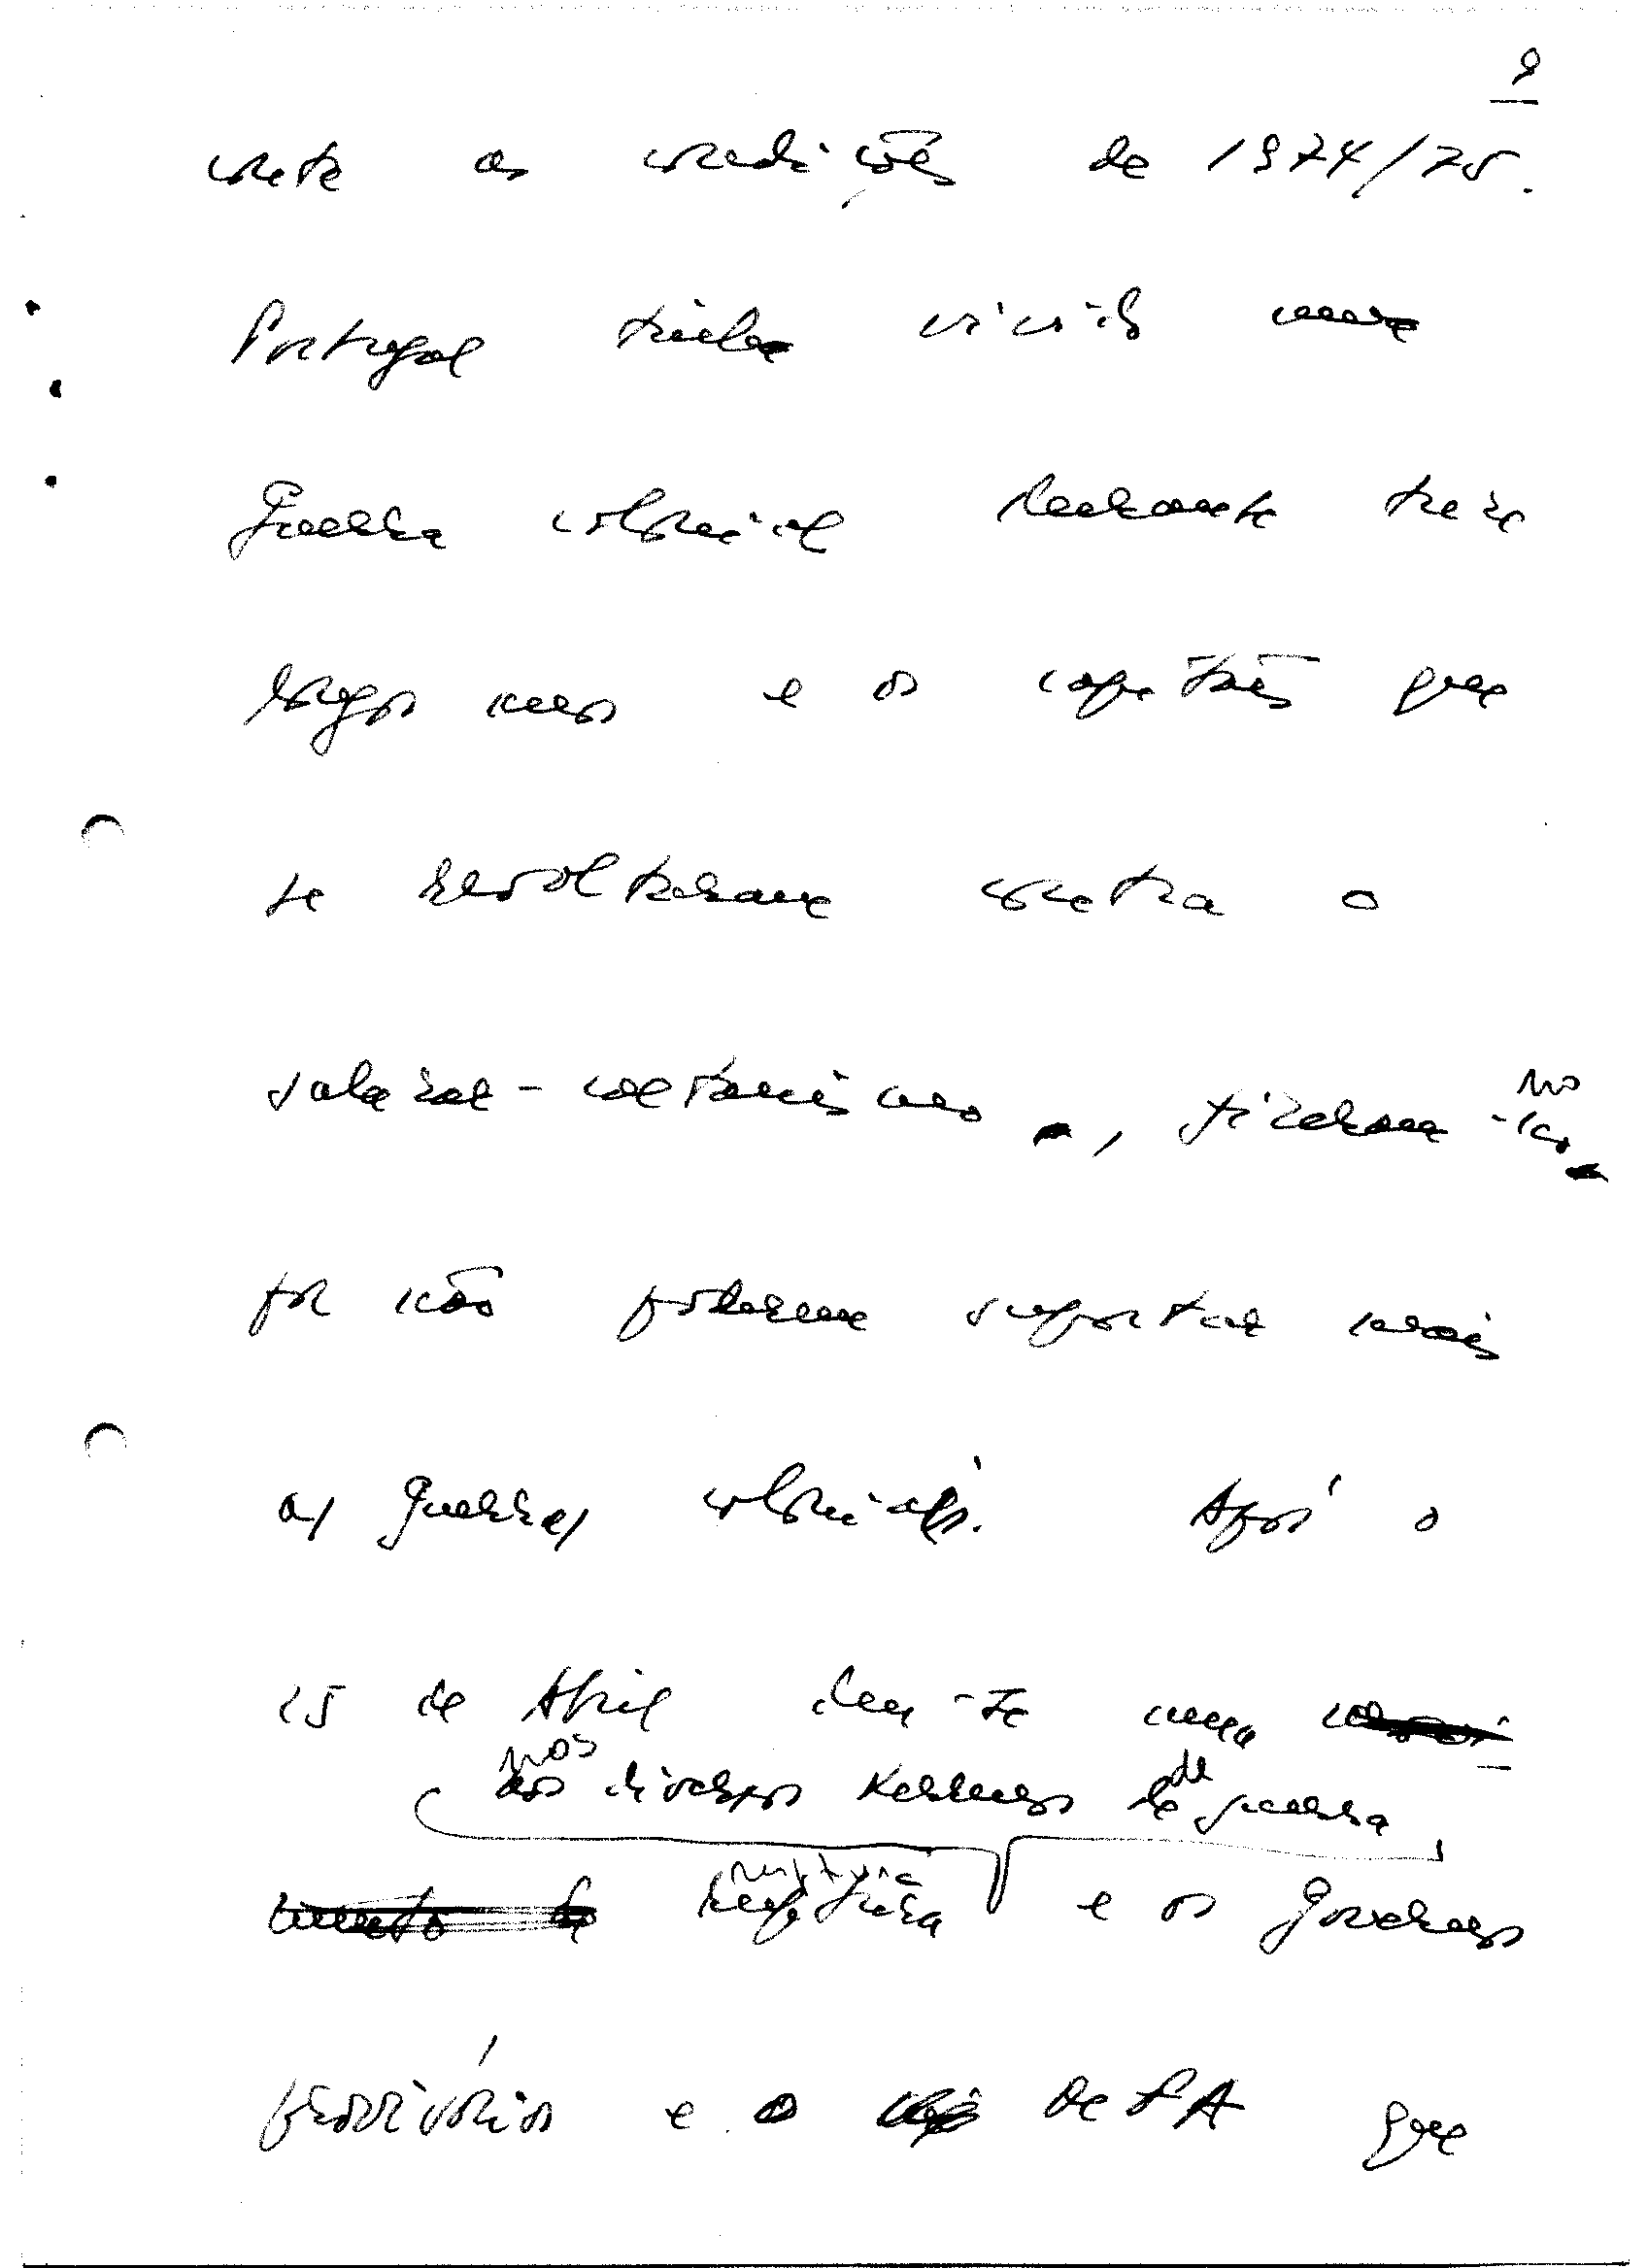 9
conta as condições de 1974/75.
Portugal tinha vivido uma
Guerra colonial durante treze
longos anos e os capitães que
se revoltaram contra o
salazar-caetanismo, fizeram-no
por não poderem suportar mais
as guerras coloniais. Após o
25 de Abril deu-se uma
nos diversos terrenos de guerra
ruptura e os Governos
provisórios e o MFA que